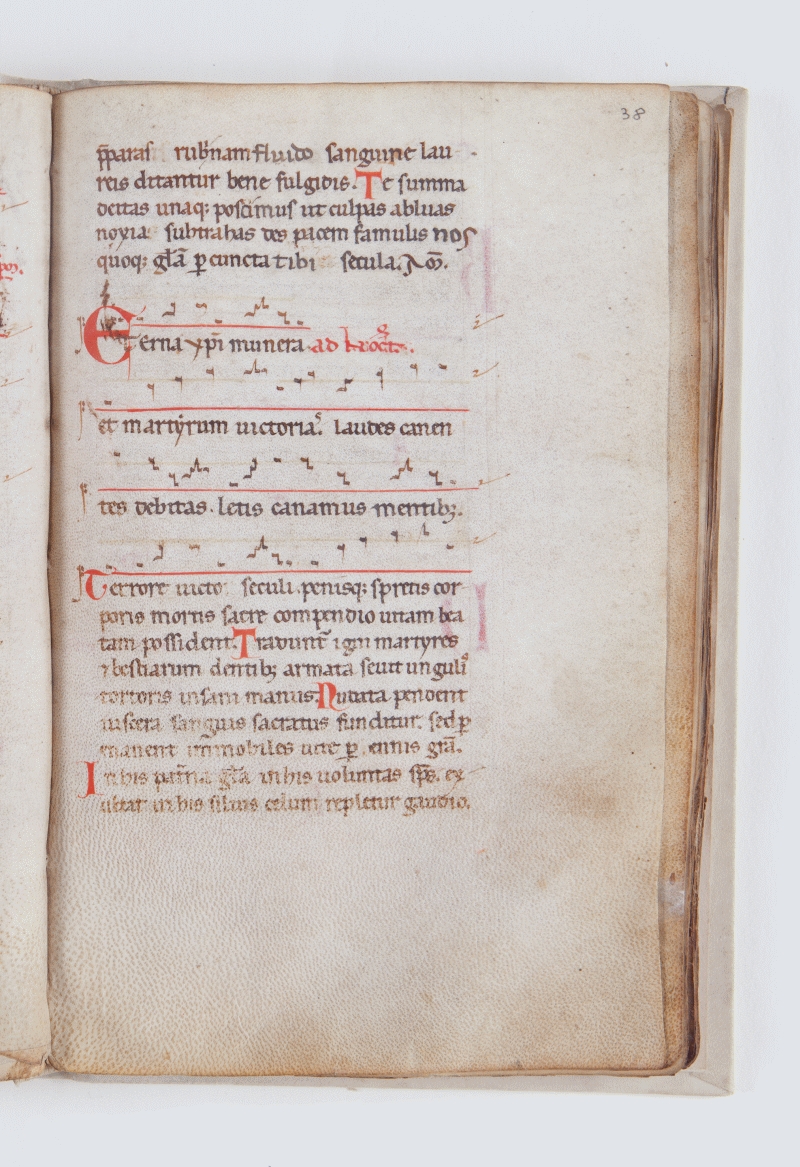 38
p̄paras rub̄nam fluido sanguine lau
reis ditantur bene fulgidis. Te summa
deitas unaq; poscimus ut culpas abluas
noxia subtrahas des pacem famulis nos
quoq; gl̄a p̲ cuncta tibi secula. Am̄.
Eterna xp̄i munera ad
et martyrum uictorias. laudes canen
tes debitas. letis canamus mentib;.
Terrore uicto seculi. penisq; spretis cor
poris mortis sacre compendio uitam bea
tam possident. Tradunt̄ igni martyres
⁊ bestiarum dentib; armata seuit unguli
tortoris insani manus. Nudata pendent
uiscera sanguis sacratus funditur. sed p̲
manent immobiles uite p̲ennis gr̄a.
In his pat̄na gl̄a in his uoluntas sp̄s. ex
ultat in his filius celum repletur gaudio.